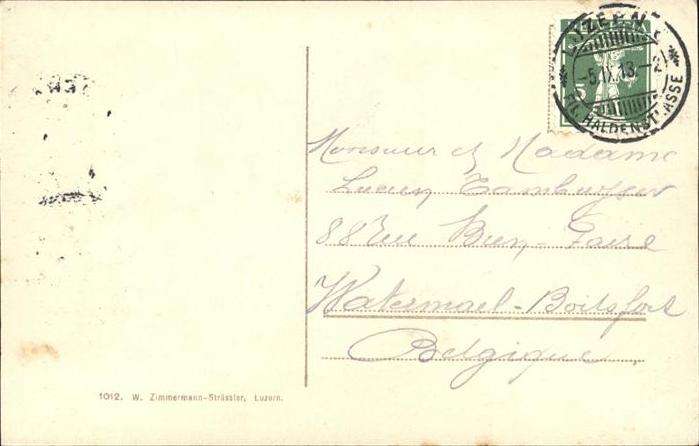 LUZERN
-5.IX.13.-2
HALDENSTRASSE
5
Monsieur et Madame
Lucien
88 Rue Bien-Faire
Watermael-Boitsfort
Belgique
1012. W. Zimmermann-Strässler, Luzern.